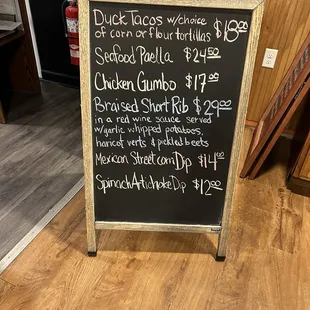 Duck Tacos w/choice $18.00
of corn or flour tortillas
Seafood Paella $24.50
Chicken Gumbo $17.00
Braised Short Rib $29.00
in a red wine Sauce served
w/garlic whipped potatoes,
haricot verts & pickled beets
Mexican Street corn Dip $14.00
Spinach Artichoke Dip $12.00